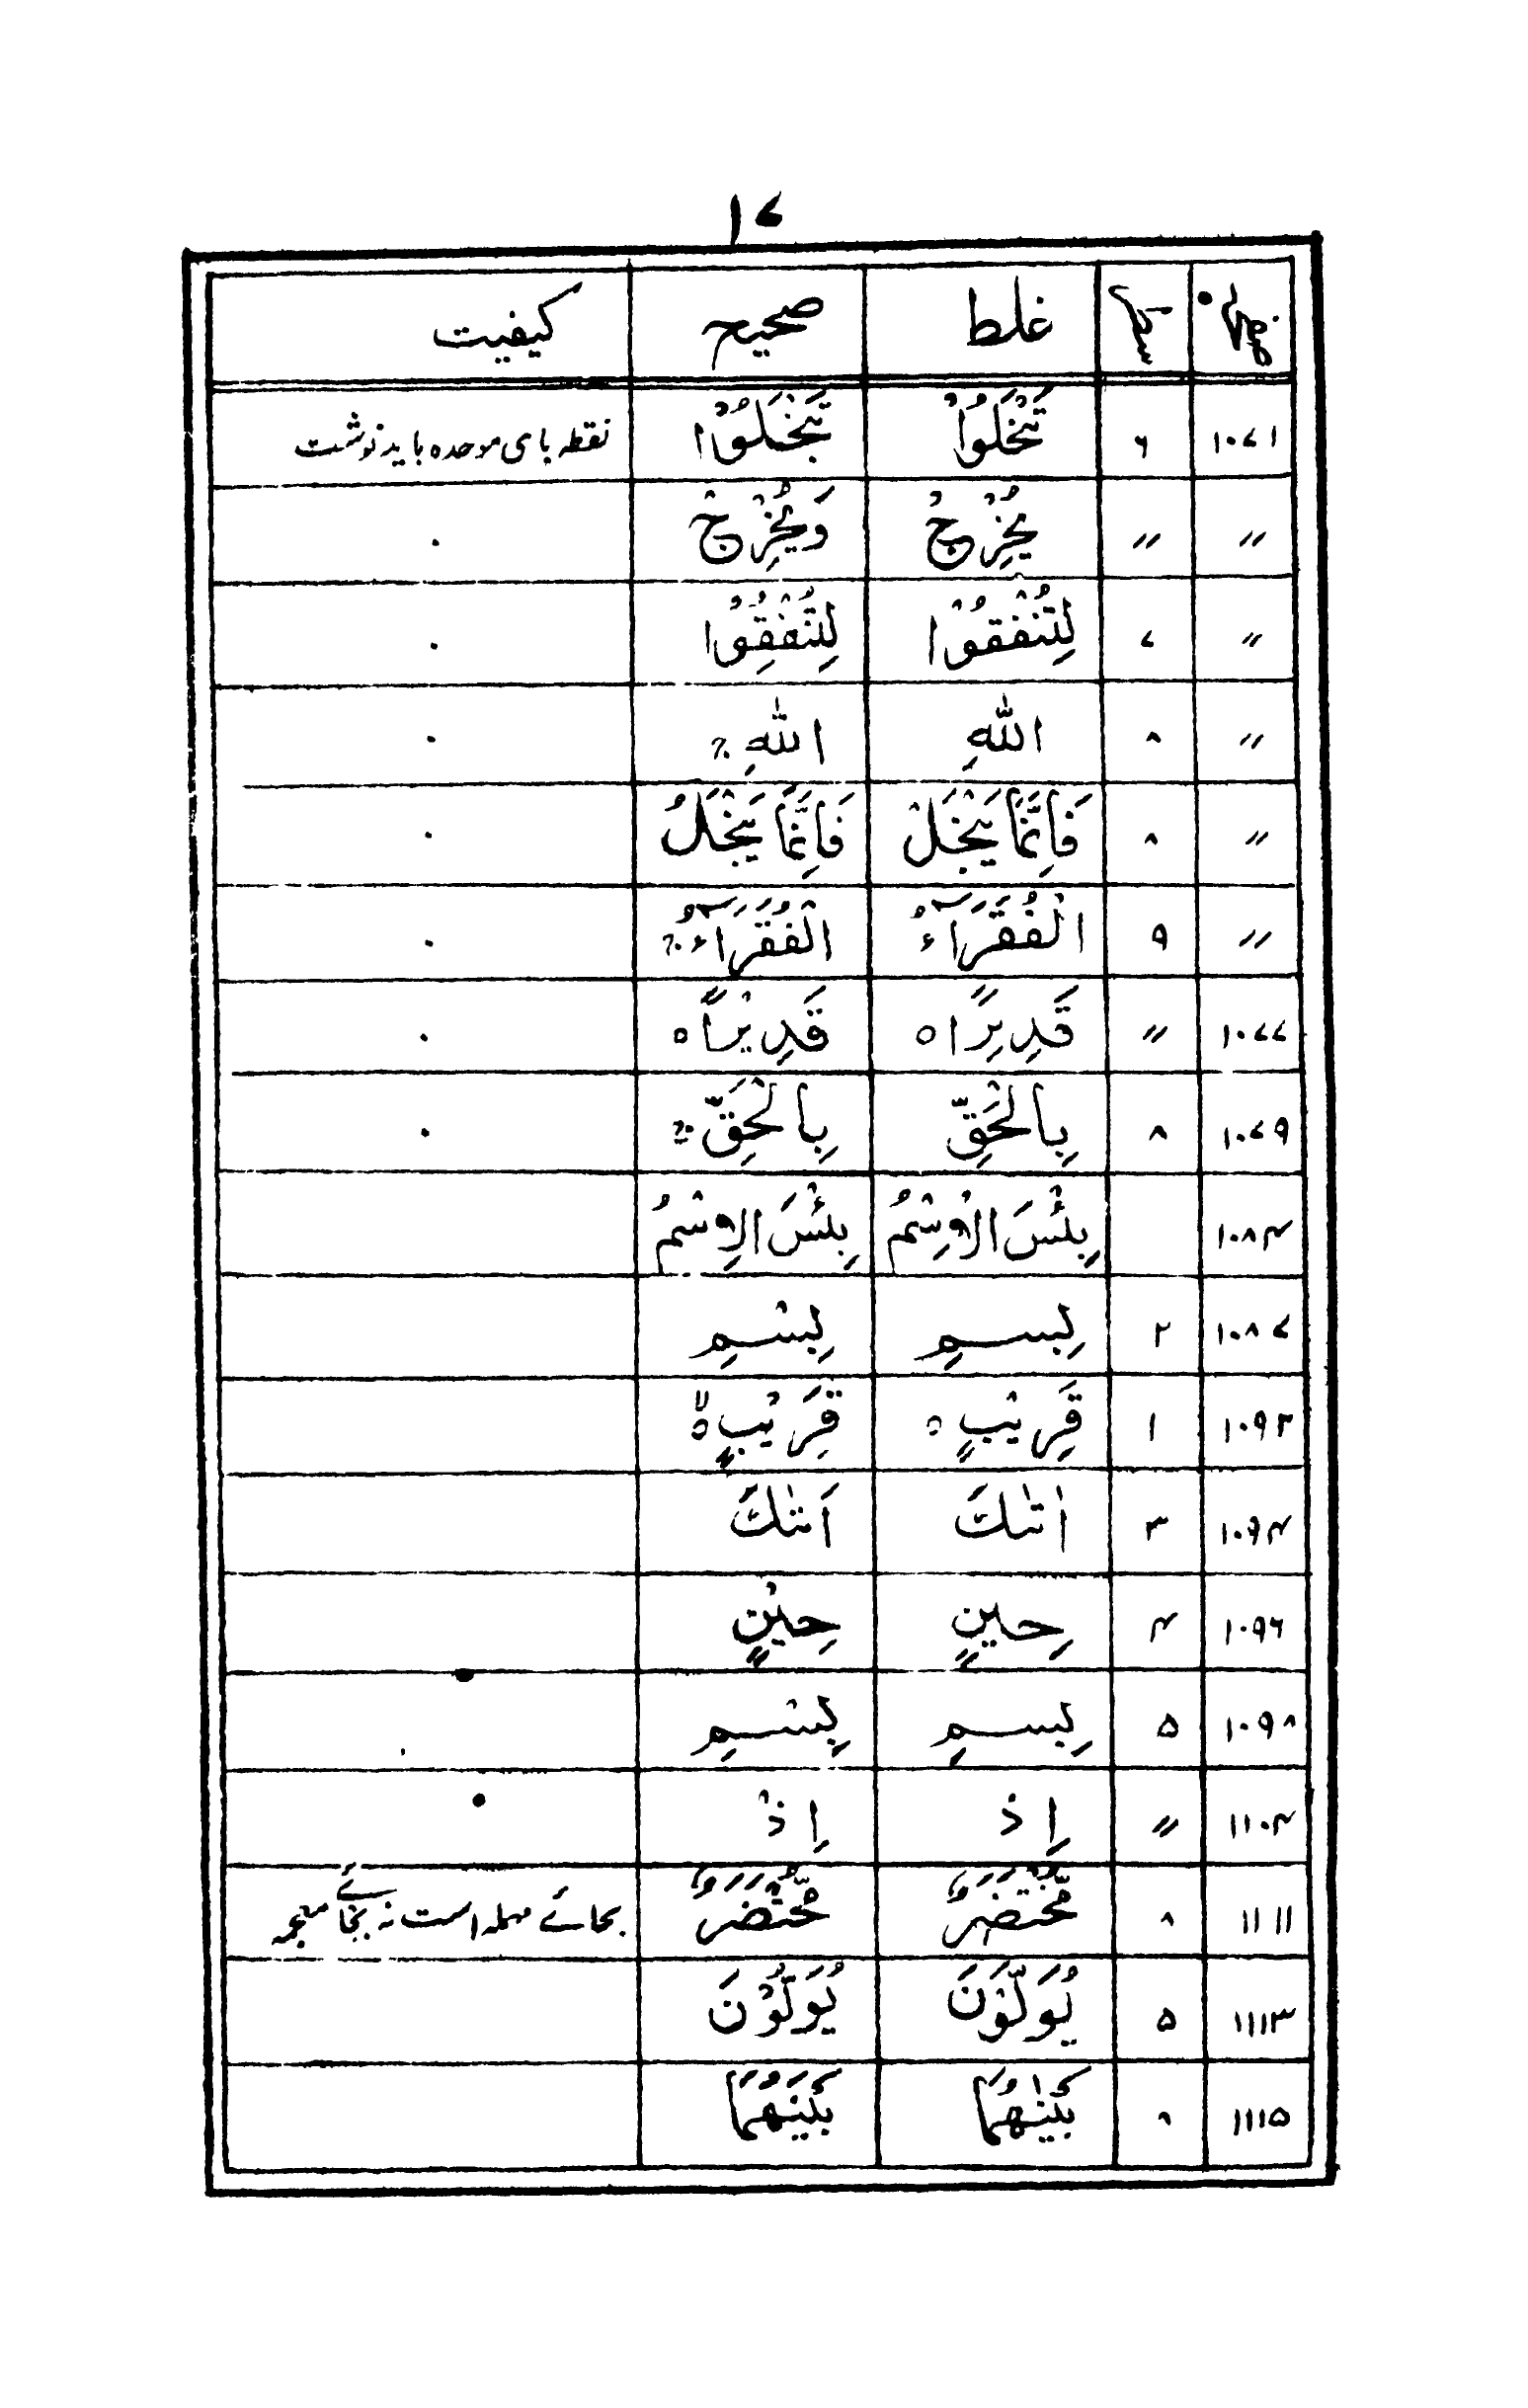 ۱۷
صفحہ سطر غلط صحیح کیفیت
۱۰۷۱ ۶ تَبْخَلُوْا تَبْخَلُوْا نقطہ بای موحدہ باید نوشت
〃 〃 يُخْرِجُ وَيُخْرِجْ ۰
〃 ۷ لِتُنْفِقُوْا لِتُنْفِقُوْا ۰
〃 ۸ اللّٰهِ اللّٰهِ ۰
〃 ۸ فَاِنَّمَا يَبْخَلْ فَاِنَّمَا يَبْخَلُ ۰
〃 ۹ الْفُقَرَآءُ الْفُقَرَآءُ ۰
۱۰۷۷ 〃 قَدِيرًا ه قَدِيْرًا ه ۰
۱۰۷۹ ۸ بِالْحَقِّ بِالْحَقِّ ۰
۱۰۸۴ بِئْسَ الْاِسْمُ بِئْسَ الِاسْمُ
۱۰۸۷ ۲ بِسمِ بِسْمِ
۱۰۹۳ ۱ قَرِيْبٍ ه قَرِيْبٍ ه
۱۰۹۴ ۳ اٰتٰىكَ اَتٰىكَ
۱۰۹۶ ۴ حِينٍ حِيْنٍ
۱۰۹۸ ۵ بِسمِ بِسْمِ
۱۱۰۴ 〃 اِذ اِذْ
۱۱۱۱ ۸ مُّخْتَضَرٌ مُّحْتَضَرٌ بحائے مہملہ است نہ بخائے معجمہ
۱۱۱۳ ۵ يُوَلَّوْنَ يُوَلُّوْنَ
۱۱۱۵ ۹ بَيْنٰهُمَا بَيْنَهُمَا